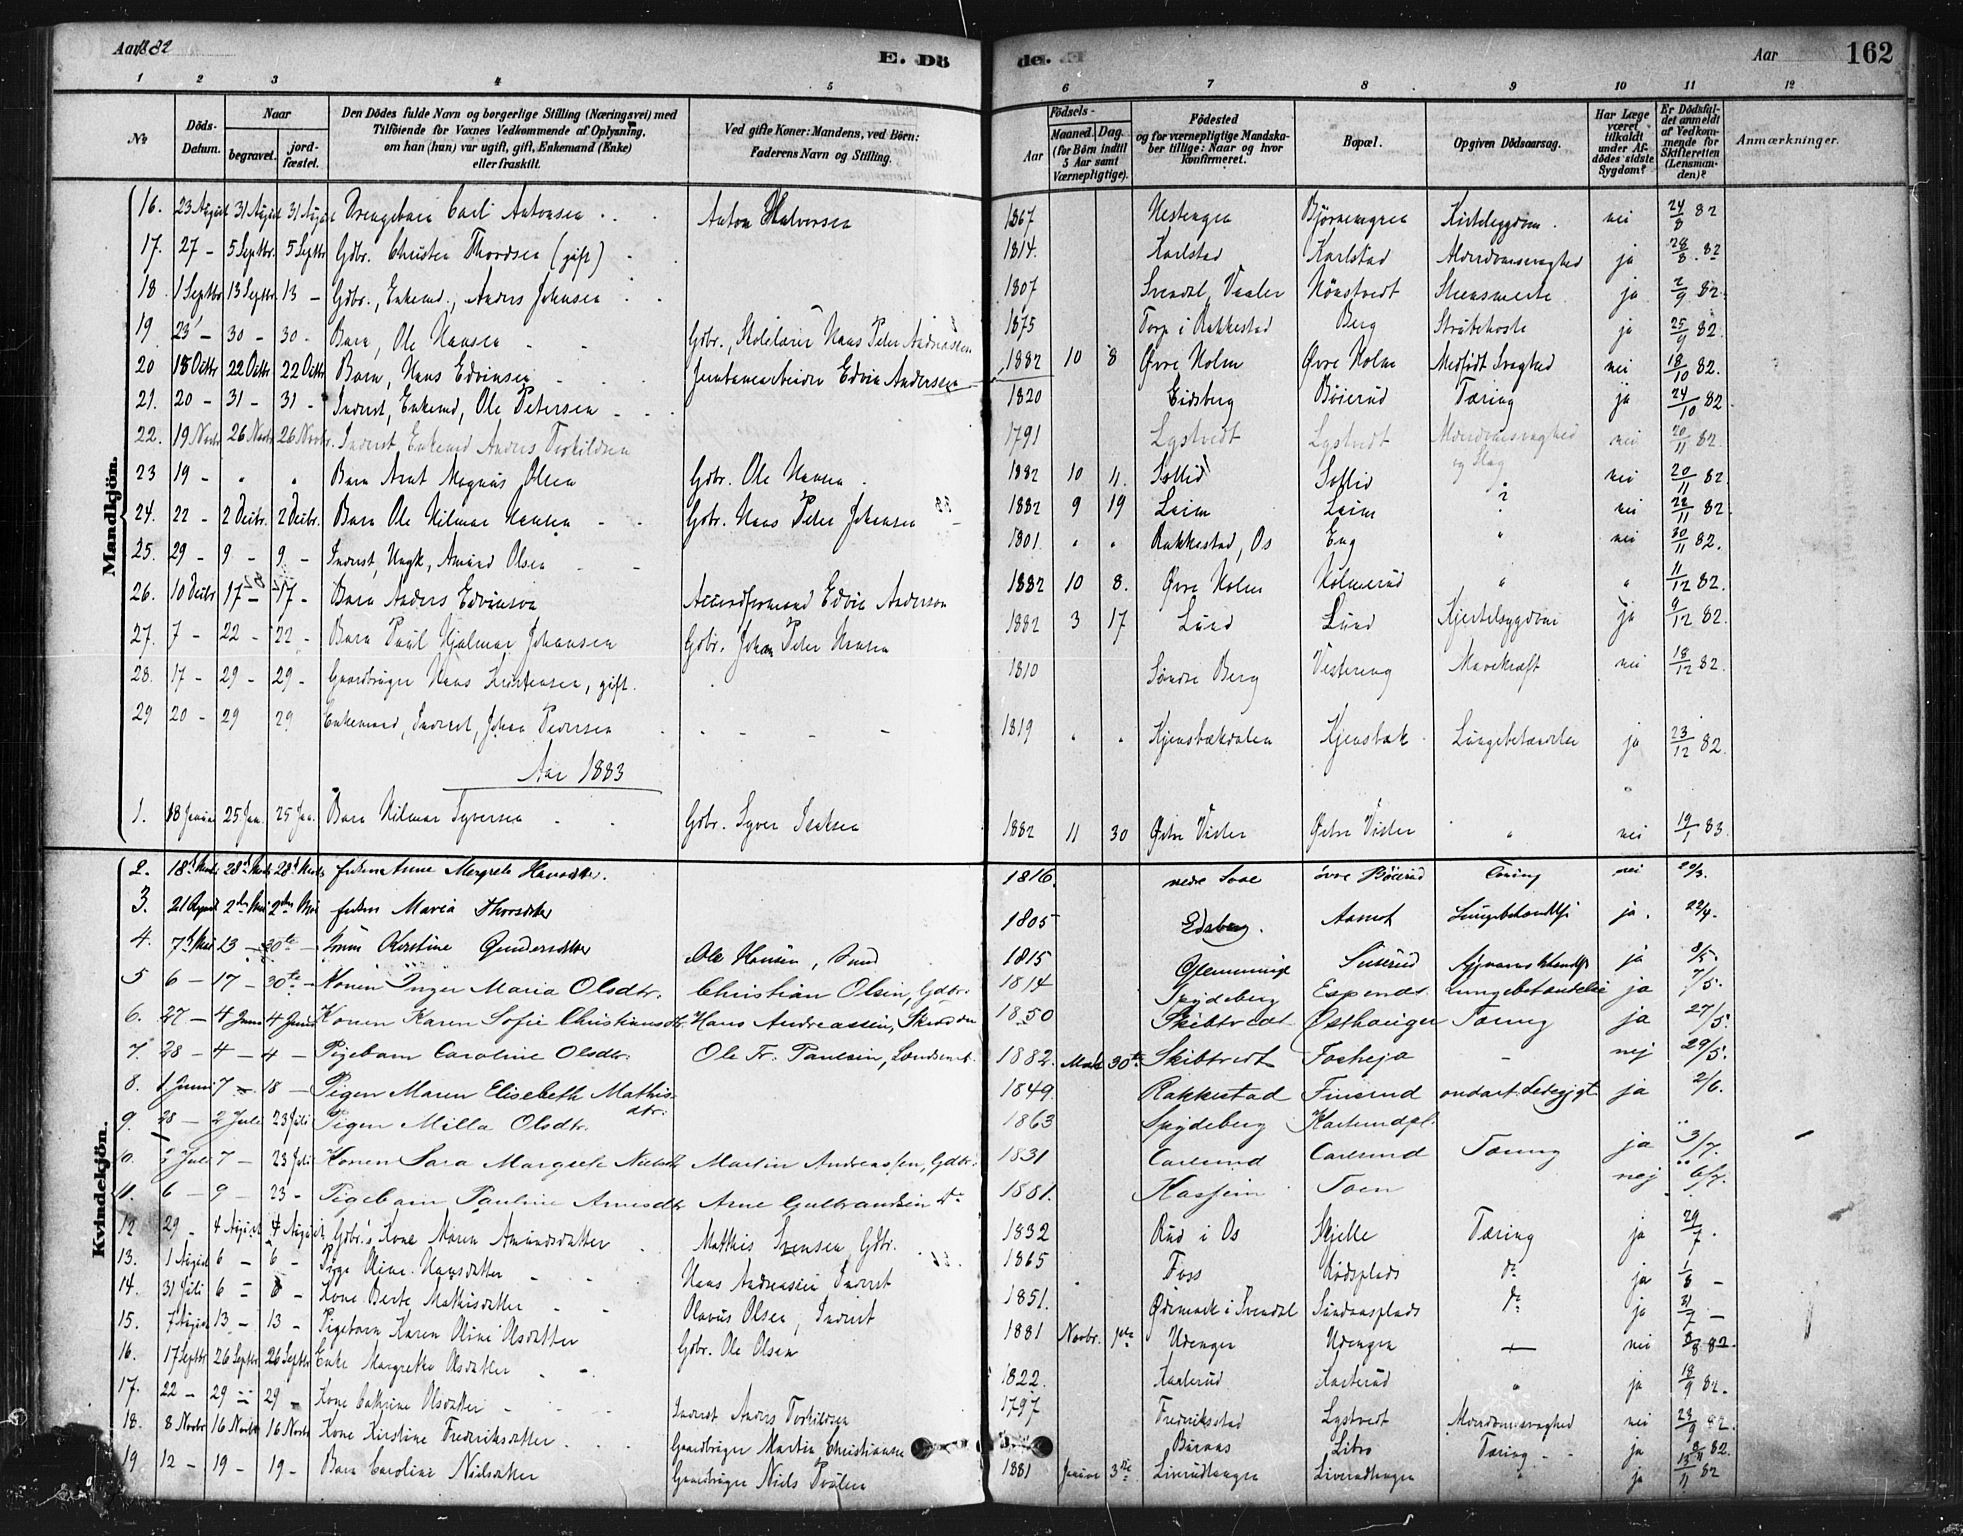 Aar 1882
E. Dö
de. E
Aar
162
1 2 3 4 5 6 7 8 9 10 11 12
No
Döds-Datum.
Naar
begravet.
jord-fæstet.
Den Dödes fulde Navn og borgerlige Stilling (Næringsvei) med
Tilföiende for Voxnes Vedkommende af Oplysning,
om han (hun) var ugift, gift, Enkemand (Enke)
eller fraskilt.
Ved gifte Koner: Mandens, ved Börn:
Faderens Navn og Stilling.
Födsels-
Aar
Maaned. Dag.
(for Börn indtil
5 Aar samt
Værnepligtige).
Födested
og for værnepligtige Mandska-
ber tillige: Naar og hvor
konfirmeret.
Bopæl.
Opgiven Dödsaarsag.
Har Læge
været
tilkaldt
under Af-
dödes sidste
Sygdom?
Er Dödsfal-
det anmeldt
af Vedkom-
mende for
Skifteretten
(Lensman-
den)?
Anmærkninger.
Mandkjön.
16. 23 August 31 August 31 August Drengebarn Carl Antonsen Anton Halvorsen 1867 Nestengen Björnengen nei 24/8 82
17. 27 – 5 Septbr. 5 Septbr Gdbr. Christen Thordsen (gift) 1814. Karlstad Karlstad Alderdomssvaghed ja 28/8. 82
18 1 Septbr 13 Septbr. 13 – Gdbr., Enkemd., Anders Johnsen 1807 Svendal, Vaaler Nönstvedt ja 2/9 82.
19 23 – 30 – 30 – Barn, Ole Hansen Gdbr., Skolelærer Hans Peter Andreassen 1875 Torp i Rakkestad Berg Strubehoste ja 25/9 82.
20 18 Octbr 22 Octbr 22 Octbr Barn, Hans Edvinsen Jernbanearbeider Edvin Andersen 1882 10 8 Øvre Holm Øvre Holm Medfödt Svaghed nei 18/10 82.
21. 20 – 31 – 31 – Inderst, Enkemd, Ole Petersen 1820 Eidsberg Böierud Tæring ja 24/10 82
22. 19 Novbr 26 Novbr 26 Novbr. Inderst Enkemd Anders Torkildsen 1791 Lystvedt Lystvedt Alderdomssvaghed og Slag nei 20/11 82.
23 19 – " " Barn Arnt Magnus Olsen Gdbr. Ole Hansen 1882 10 11. Sollid Sollid nei 20/11 82.
24. 22 – 2 Decbr. 2 Decbr. Barn Ole Hilmar Hansen Gdbr. Hans Peter Johansen 1882 9 19 Leim Leim ? nei 22/11 82.
25. 29 – 9 – 9 – Inderst, Ungk, Amund Olsen 1801. " " Rakkestad, Os Eng " nei 30/11 82.
26. 10 Decbr 17 – 17 – Barn Anders Edvinsen Accordformand Edvin Anderson 1882 10 8. Øvre Holm Holmerud " " 11/12 82.
27. 7 – 22 – 22 – Barn Paul Hjalmar Johansen Gdbr. Johan Peter Hansen 1882 3 17 Lund Lund Kjertelsygdom ja 9/12 82.
28. 17 – 29 – 29 – Gaardbruger Hans Kristensen, gift. 1810 Söndre Berg Vestereng Mavekræft nei 18/12 82.
29 20 – 29 29 Enkemand, Inderst, Johan Pedersen – – – – 1819 " " Kjensbækdalen Kjensbæk Lungebetændelse ja 23/12 82.
Aar 1883
1. 18 Januar 25 Jan. 25 Jan. Barn Hilmar Syversen Gdbr. Syver Isaksen 1882 11 30 Østre Visler Østre Visler " nei 19/1 83.
Kvindekjön.
2. 18de Marts 28de Marts 28de Marts Enken Anne Margrete Hansdtr. 1816. nedre Soae övre Böierud Tæring nei 20/3.
3. 21 April 2den Mai 2den Mai Enken Maria Thorsdtr 1805 Edsberg. Aamot Lungebetændelse ja. 22/4.
4. 7de Mai 13 – 30te – Konen Kirstine Gundersdatter Ole Hansen, Lund 1815 Glemminge ja 8/5.
5 6 – 17 – 30te – Konen Inger Maria Olsdtr. Christian Olsen, Gdbr. 1814 Spydeberg Lungebetændelse ja 7/5.
6. 27 – 4 Juni 4 Juni Konen Karen Sofie Christiansdtr. Hans Andreassen, 1850 Skibtvedt Østhauger Tæring ja 27/5.
7. 28 – 4 – 4 – Pigebarn Caroline Olsdtr. Ole Fr. Paulsen, 1882. Marts 30te Skibtvedt Fosheja – nej 29/5.
8. 1 Juni 7 – 18 – Pigen Maren Elisabeth Mathis-dtr. 1849. Rakkestad Finsrud ja 2/6.
9. 28 – 2 Juli 23 Juli Pigen Milla Olsdtr. 1863 Spydeberg Karlsrudpl.
10. Juli 7 – 23 Juli Konen Sara Margrete Nielsdtr Martin Andreassen, Gdbr. 1831 Carlsrud Carlsrud Tæring ja 3/7.
11. 6 – 9 – 23 – Pigebarn Pauline Arnesdtr Arne Gulbrandsen Do 1881. Kasfein Toen nej 6/7.
12 29 – 4 August 4 August Gdbr.s Kone Maren Amundsdatter Matthis Svensen, Gdbr. 1832 Rud i Os Skjelle Tæring ja 29/7.
13. 1 August 6 – 6 – Pige Oline Hansdatter Hans Andreassen Inderst 1865 Foss Rödsplads do ja 1/8 –
14. 31 Juli 6 – 6 – Kone Berte Mathisdatter Olavus Olsen, Inderst 1851. Ødemark i Svendal Sundaasplads do ja 31/7 –
15. 7 August 13 – 13 – Pigebarn Karen Oline Olsdatter Gdbr. Ole Olsen 1881 Novbr. 1ste Udengen Udengen – nei 8/8 82.
16. 17 Septbr 26 Septbr 26 Septbr Enke Margrethe Olsdatter 1822. Kaalerud Karterud " ja 18/9 82.
17. 22 – 29 – 29 – Kone Cathrine Olsdatter Inderst Anders Torkildsen 1797 Fredriksstad Lystvedt Alderdomssvaghed nei 23/9 82.
18. 8 Novbr 16 Novbr 16 Novbr Kone Kirstine Fredriksdatter Gaardbruger Martin Christiansen Buraas Libro Tæring ja 8/11 82.
19 12 – 19 – 19 – Barn Caroline Nielsdatter Gaardbruger Niels Poulsen 1881 Januar 3die Liverudhengen Liverudhengen " ja 13/11 82